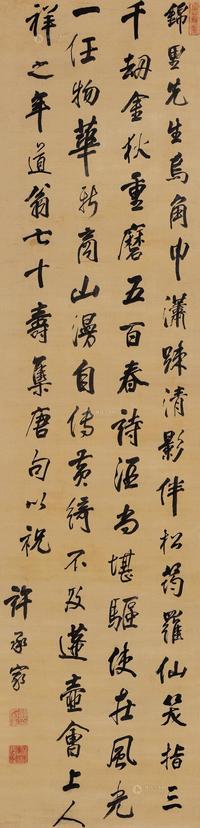 錦里先生烏角巾瀟疎清影伴松筠羅仙笑指三
千劫金狄重磨五百春詩酒尚堪驅使在風光
一任物華新商山漫自傳黃綺不及蓬壺會上人
祥之年道翁七十壽集唐句以祝
許承家